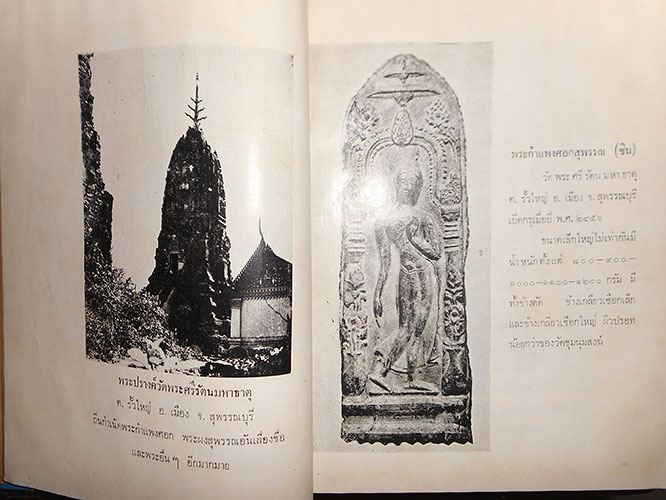 พระปรางค์วัดพระศรีรัตนมหาธาตุ
ต. รั้วใหญ่ อ. เมือง จ. สุพรรณบุรี
ถิ่นกำเนิดพระกำแพงศอก พระผงสุพรรณอันเลื่องชื่อ
และพระอื่นๆ อีกมากมาย
พระกำแพงศอกสุพรรณ (ชิน)
วัด พระ ศรี รัตน มหา ธาตุ
ต. รั้วใหญ่ อ. เมือง จ. สุพรรณบุรี
เปิดกรุเมื่อปี พ.ศ. ๒๔๕๖
ขนาดเล็กใหญ่ไม่เท่ากันมี
น้ำหนักตั้งแต่ ๘๐๐-๙๐๐-
๑๐๐๐-๑๑๐๐-๑๒๐๐ กรัม มี
ทั้งข้างตัด ข้างเกลียวเชือกเล็ก
และข้างเกลียวเชือกใหญ่ ผิวปรอท
น้อยกว่าของวัดชุมนุมสงฆ์